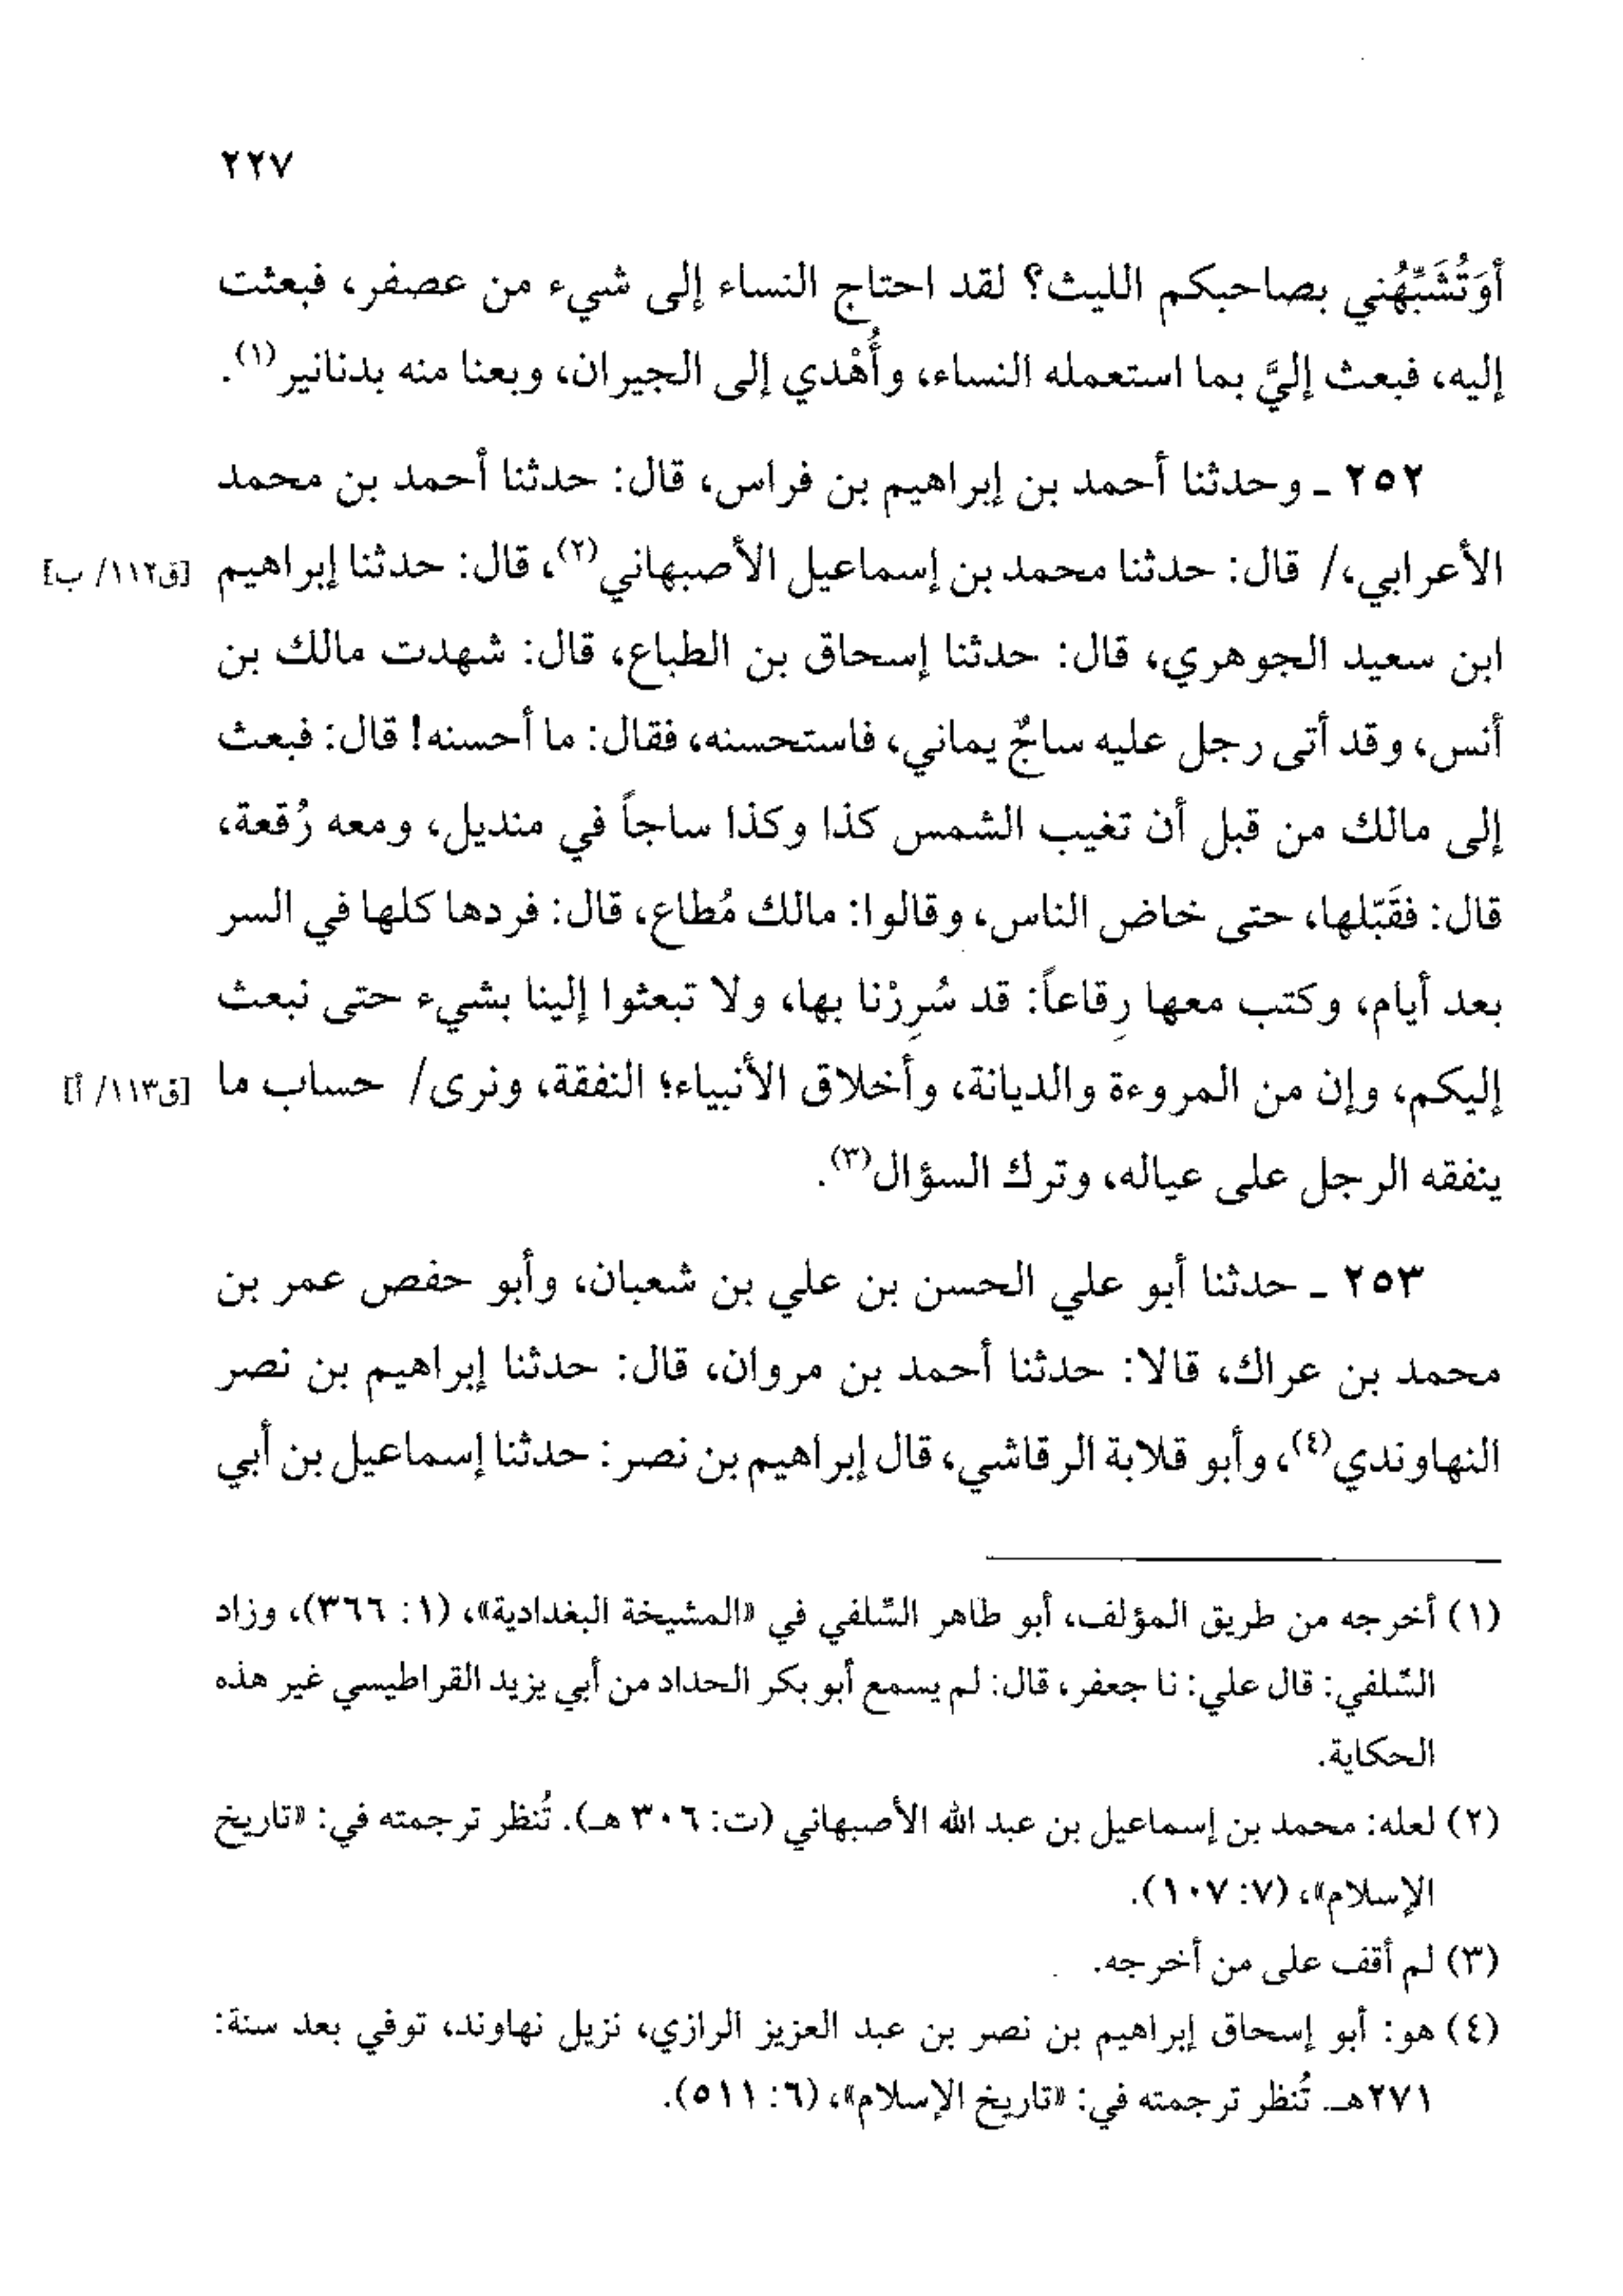 ٢٢٧
أوَتُشَبِّهُني بصاحبكم الليث؟ لقد احتاج النساء إلى شيء من عصفر، فبعثت
إليه، فبعث إليَّ بما استعمله النساء، وأُهْدي إلى الجيران، وبعنا منه بدنانير(١).
٢٥٢ ـ وحدثنا أحمد بن إبراهيم بن فراس، قال: حدثنا أحمد بن محمد
الأعرابي،/ قال: حدثنا محمد بن إسماعيل الأصبهاني(٢)، قال: حدثنا إبراهيم [ق١١٢/ ب]
ابن سعيد الجوهري، قال: حدثنا إسحاق بن الطباع، قال: شهدت مالك بن
أنس، وقد أتى رجل عليه ساجٌ يماني، فاستحسنه، فقال: ما أحسنه! قال: فبعث
إلى مالك من قبل أن تغيب الشمس كذا وكذا ساجاً في منديل، ومعه رُقعة،
قال: فقَبّلها، حتى خاض الناس، وقالوا: مالك مُطاع، قال: فردها كلها في السر
بعد أيام، وكتب معها رِقاعاً: قد سُرِرْنا بها، ولا تبعثوا إلينا بشيء حتى نبعث
إليكم، وإن من المروءة والديانة، وأخلاق الأنبياء؛ النفقة، ونرى/ حساب ما [ق١١٣/ أ]
ينفقه الرجل على عياله، وترك السؤال(٣).
٢٥٣ ـ حدثنا أبو علي الحسن بن علي بن شعبان، وأبو حفص عمر بن
محمد بن عراك، قالا: حدثنا أحمد بن مروان، قال: حدثنا إبراهيم بن نصر
النهاوندي(٤)، وأبو قلابة الرقاشي، قال إبراهيم بن نصر: حدثنا إسماعيل بن أبي
(١) أخرجه من طريق المؤلف، أبو طاهر السِّلفي في «المشيخة البغدادية»، (١: ٣٦٦)، وزاد
السِّلفي: قال علي: نا جعفر، قال: لم يسمع أبو بكر الحداد من أبي يزيد القراطيسي غير هذه
الحكاية.
(٢) لعله: محمد بن إسماعيل بن عبد الله الأصبهاني (ت: ٣٠٦ هـ). تُنظر ترجمته في: «تاريخ
الإسلام»، (٧: ١٠٧).
(٣) لم أقف على من أخرجه.
(٤) هو: أبو إسحاق إبراهيم بن نصر بن عبد العزيز الرازي، نزيل نهاوند، توفي بعد سنة:
٢٧١هـ. تُنظر ترجمته في: «تاريخ الإسلام»، (٦: ٥١١).